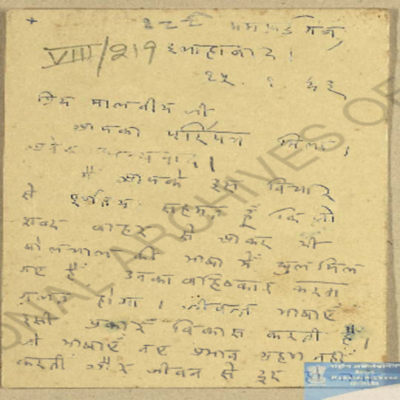 VIII/219 इलाहाबाद।
प्रिय मालवीय जी
आपका परिपत्र मिला।
मैं आपके इस विचार
से पूर्णतया सहमत हूँ कि जो
शब्द बाहर से आकर भी
बोलचाल की भाषा में घुल मिल
गए हैं उनका बहिष्कार करना
ग़लत होगा। जीवन्त भाषाएँ
इसी प्रकार विकास करती हैं।
जो भाषाएँ नए प्रभाव ग्रहण नहीं
करती और जीवन से दूर